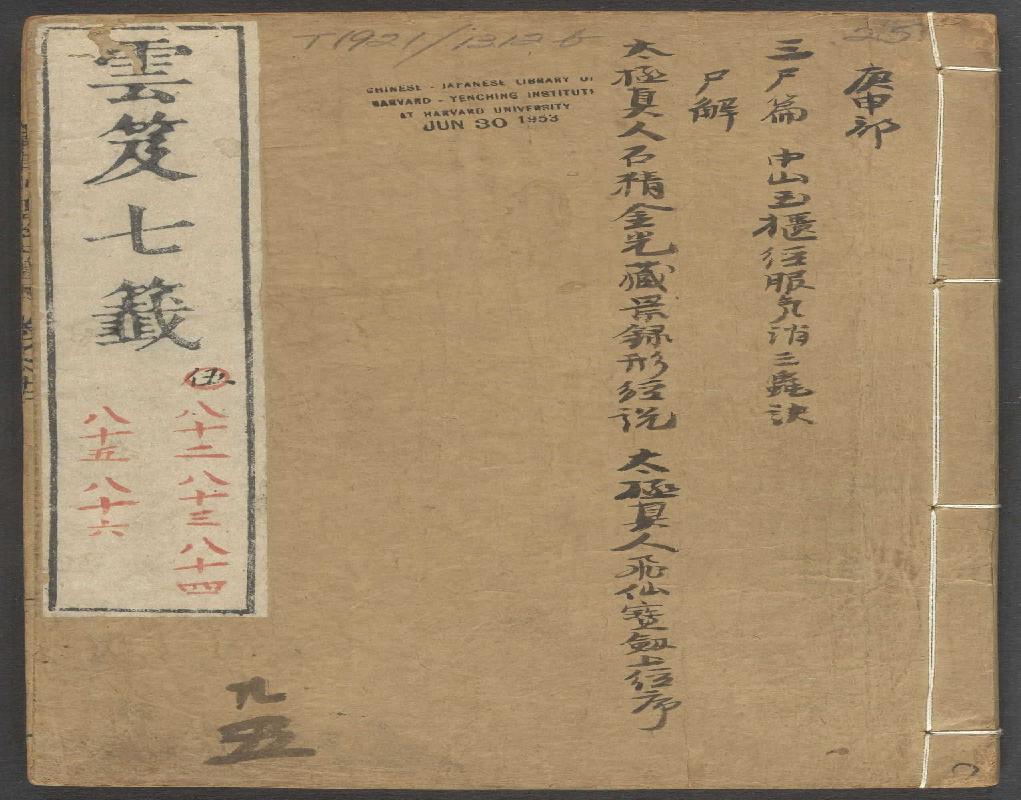 25
庚申部
三尸篇 中山玉櫃経服気消三蟲訣
尸解
太極真人石精金光藏景録形経説 太極真人飛仙寶劔上経序
T1921/1312.6
CHINESE - JAPANESE LIBRARY OF
HARVARD - YENCHING INSTITUTE
AT HARVARD UNIVERSITY
JUN 30 1953
雲笈七籤
伍
八十二 八十三 八十四
八十五 八十六
九
五